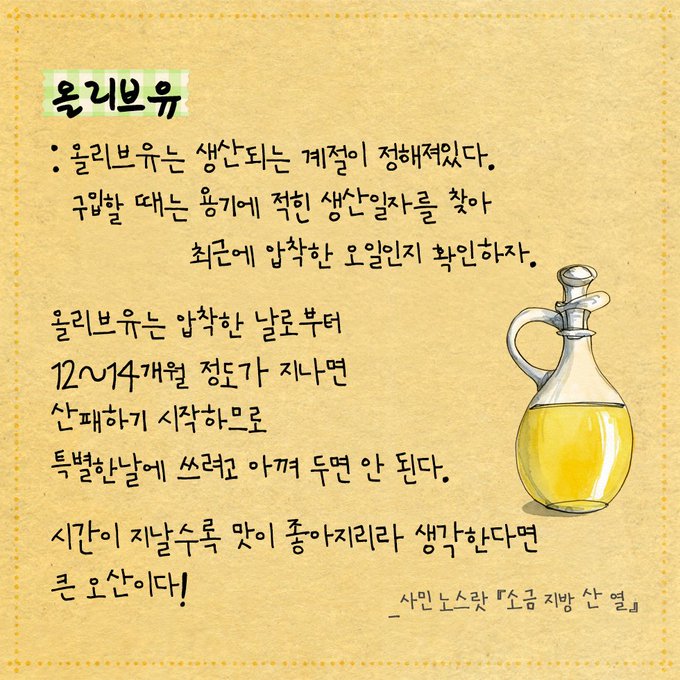 올리브유
: 올리브유는 생산되는 계절이 정해져있다.
구입할 때는 용기에 적힌 생산일자를 찾아
최근에 압착한 오일인지 확인하자.
올리브유는 압착한 날로부터
12~14개월 정도가 지나면
산패하기 시작하므로
특별한날에 쓰려고 아껴 두면 안 된다.
시간이 지날수록 맛이 좋아지리라 생각한다면
큰 오산이다!
_사민 노스랏 『소금 지방 산 열』